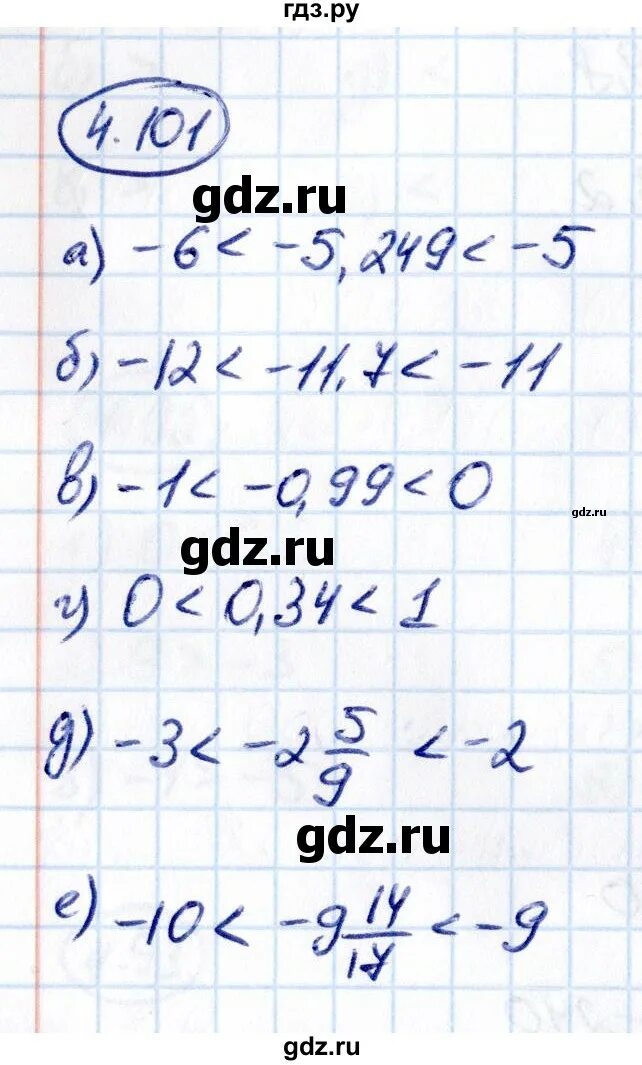 гдз.ру
4.101
gdz.ru
а) -6 < -5,249 < -5
б) -12 < -11,7 < -11
в) -1 < -0,99 < 0
gdz.ru
gdz.ru
г) 0 < 0,34 < 1
д) -3 < -2 5/9 < -2
gdz.ru
е) -10 < -9 14/17 < -9
gdz.ru